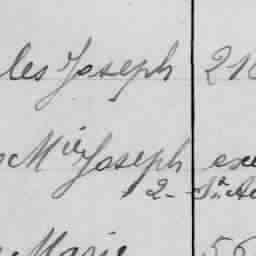 les Joseph 21
Mie Joseph exe
2 - Sr. Ac
Marie 56